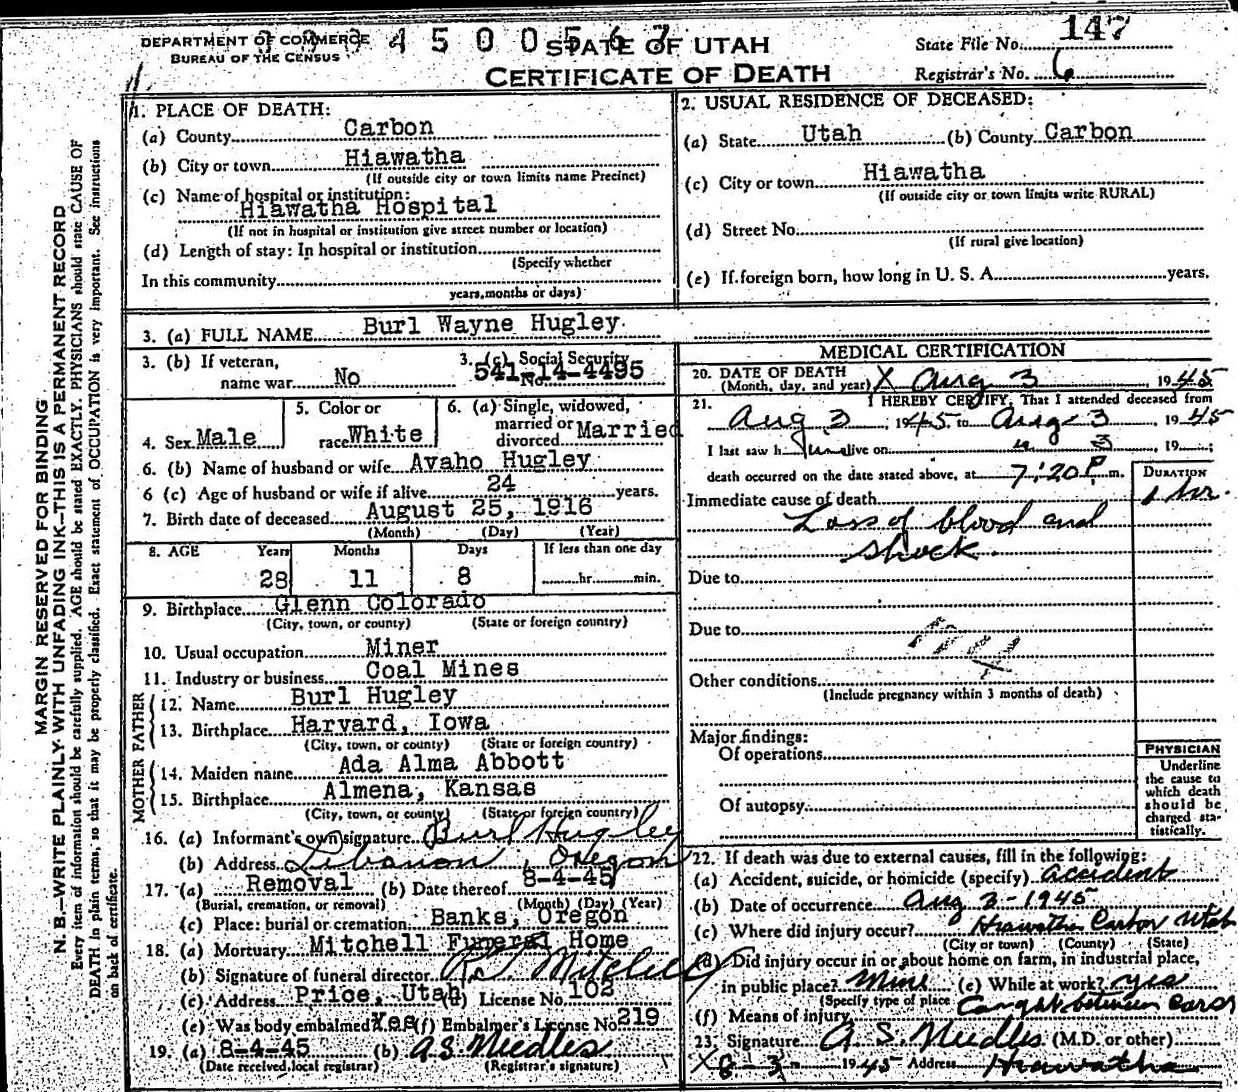 DEPARTMENT OF COMMERCE
BUREAU OF THE CENSUS
4 5 0 0 5 6 7
STATE OF UTAH
CERTIFICATE OF DEATH
State File No. 147
Registrar's No. 6
MARGIN RESERVED FOR BINDING
N. B.—WRITE PLAINLY WITH UNFADING INK—THIS IS A PERMANENT RECORD
Every item of information should be carefully supplied. AGE should be stated EXACTLY. PHYSICIANS should state CAUSE OF
DEATH in plain terms, so that it may be properly classified. Exact statement of OCCUPATION is very important. See instructions
on back of certificate.
1. PLACE OF DEATH:
(a) County Carbon
(b) City or town Hiawatha
(If outside city or town limits name Precinct)
(c) Name of hospital or institution:
Hiawatha Hospital
(If not in hospital or institution give street number or location)
(d) Length of stay: In hospital or institution
(Specify whether
In this community
years, months or days)
2. USUAL RESIDENCE OF DECEASED:
(a) State Utah (b) County Carbon
(c) City or town Hiawatha
(If outside city or town limits write RURAL)
(d) Street No.
(If rural give location)
(e) If foreign born, how long in U. S. A. years.
3. (a) FULL NAME Burl Wayne Hugley
3. (b) If veteran,
name war No
3. (c) Social Security
No. 541-14-4495
4. Sex Male
5. Color or
race White
6. (a) Single, widowed,
married or
divorced Married
6. (b) Name of husband or wife Avaho Hugley
6 (c) Age of husband or wife if alive 24 years.
7. Birth date of deceased August 25, 1916
(Month) (Day) (Year)
8. AGE Years Months Days If less than one day
28 11 8 hr. min.
9. Birthplace Glenn Colorado
(City, town, or county) (State or foreign country)
10. Usual occupation Miner
11. Industry or business Coal Mines
FATHER
12. Name Burl Hugley
13. Birthplace Harvard, Iowa
(City, town, or county) (State or foreign country)
MOTHER
14. Maiden name Ada Alma Abbott
15. Birthplace Almena, Kansas
(City, town, or county) (State or foreign country)
16. (a) Informant's own signature Burl Hugley
(b) Address Lebanon, Oregon
17. (a) Removal (b) Date thereof 8-4-45
(Burial, cremation, or removal) (Month) (Day) (Year)
(c) Place: burial or cremation Banks, Oregon
18. (a) Mortuary Mitchell Funeral Home
(b) Signature of funeral director Mitchell
(c) Address Price, Utah (d) License No. 102
(e) Was body embalmed Yes (f) Embalmer's License No 219
19. (a) 8-4-45 (b) A.S. Needles
(Date received, local registrar) (Registrar's signature)
MEDICAL CERTIFICATION
20. DATE OF DEATH
(Month, day, and year) X Aug 3, 1945
21. I HEREBY CERTIFY, That I attended deceased from
Aug 3, 1945, to Aug 3, 1945
I last saw h im alive on " 3, 19 ;
death occurred on the date stated above, at 7:20 P. m.
DURATION
Immediate cause of death 1 hr.
Loss of blood and
shock.
Due to
Due to
Other conditions
(Include pregnancy within 3 months of death)
Major findings:
Of operations
Of autopsy
PHYSICIAN
Underline
the cause to
which death
should be
charged sta-
tistically.
22. If death was due to external causes, fill in the following:
(a) Accident, suicide, or homicide (specify) accident
(b) Date of occurrence Aug 3-1945
(c) Where did injury occur? Hiawatha Carbon Utah
(City or town) (County) (State)
(d) Did injury occur in or about home on farm, in industrial place,
in public place? Mine (e) While at work? yes
(Specify type of place)
(f) Means of injury Caught between cars
23. Signature A. S. Needles (M.D. or other)
X 8-3- 1945 Address Hiawatha